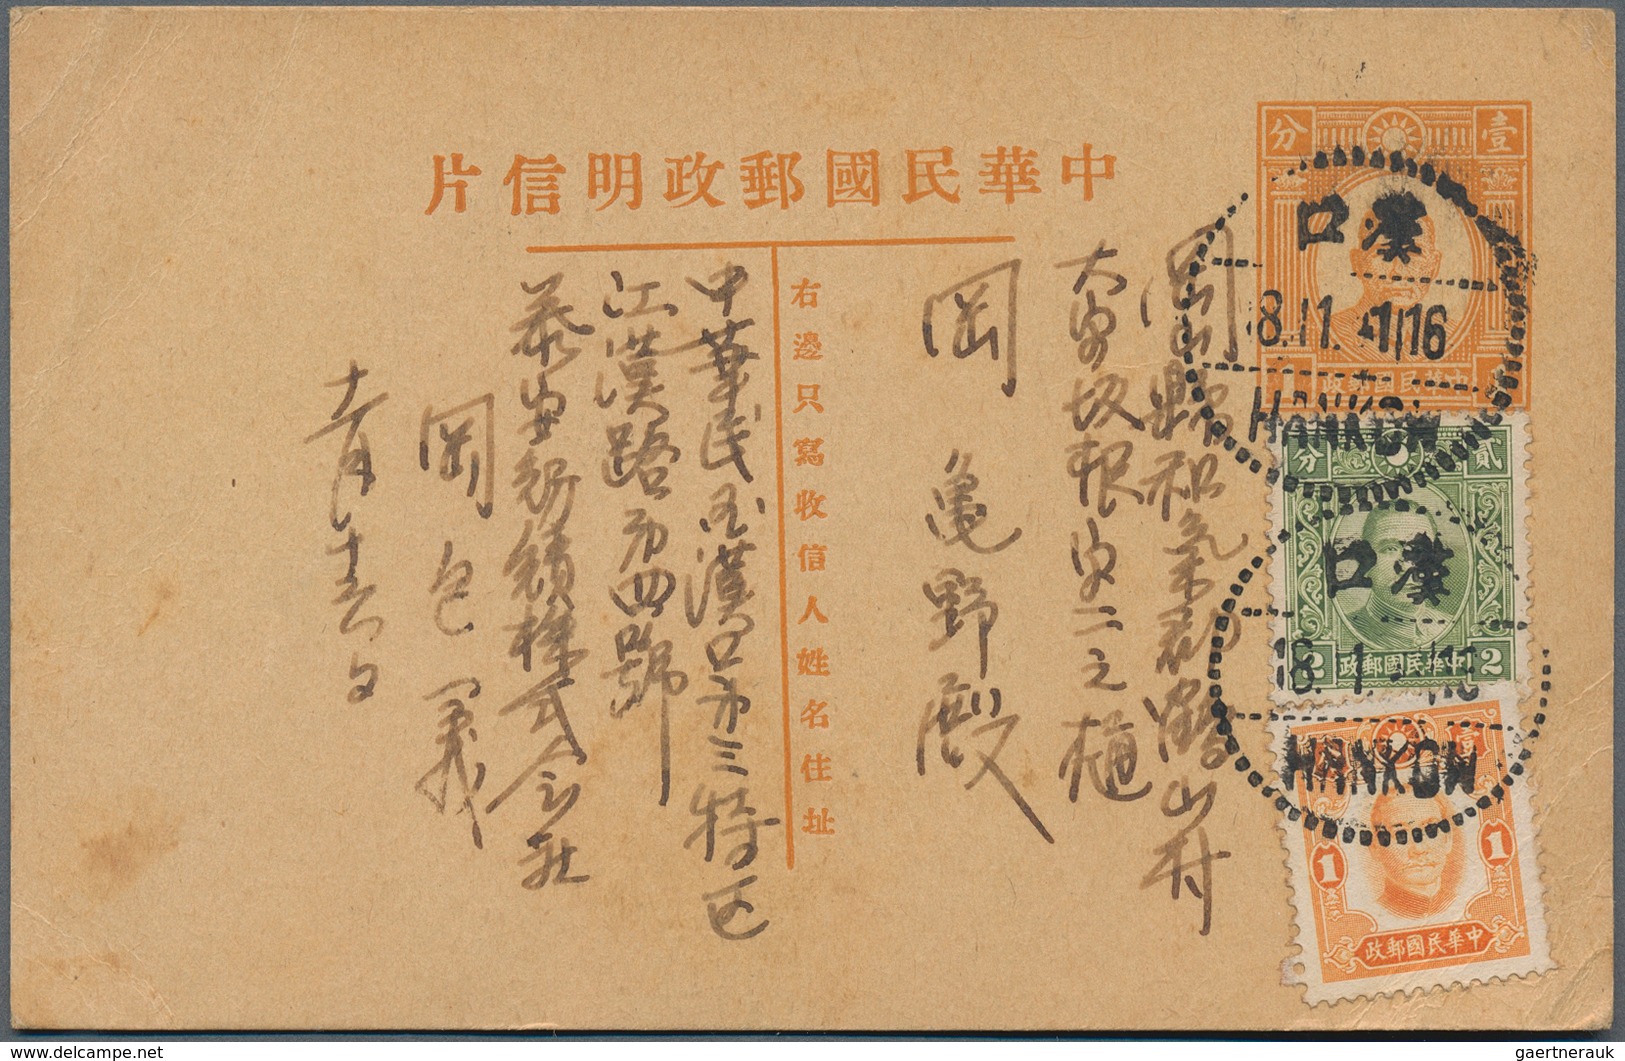 中華民國郵政明信片
壹分
中華民國郵政
1
漢口
18.11.41 16
HANKOW
貳分
中華民國郵政
2 2
漢口
18.11.
HANKOW
壹
1 1
中華民國郵政
右邊只寫收信人姓名住址
岡山縣和氣郡鶴山村
大字坂根字二之樋
岡亀野殿
中華民国漢口市三特区
江漢路第四號
泰安紡績株式会社
岡
十一月十六日
gaertnerauk